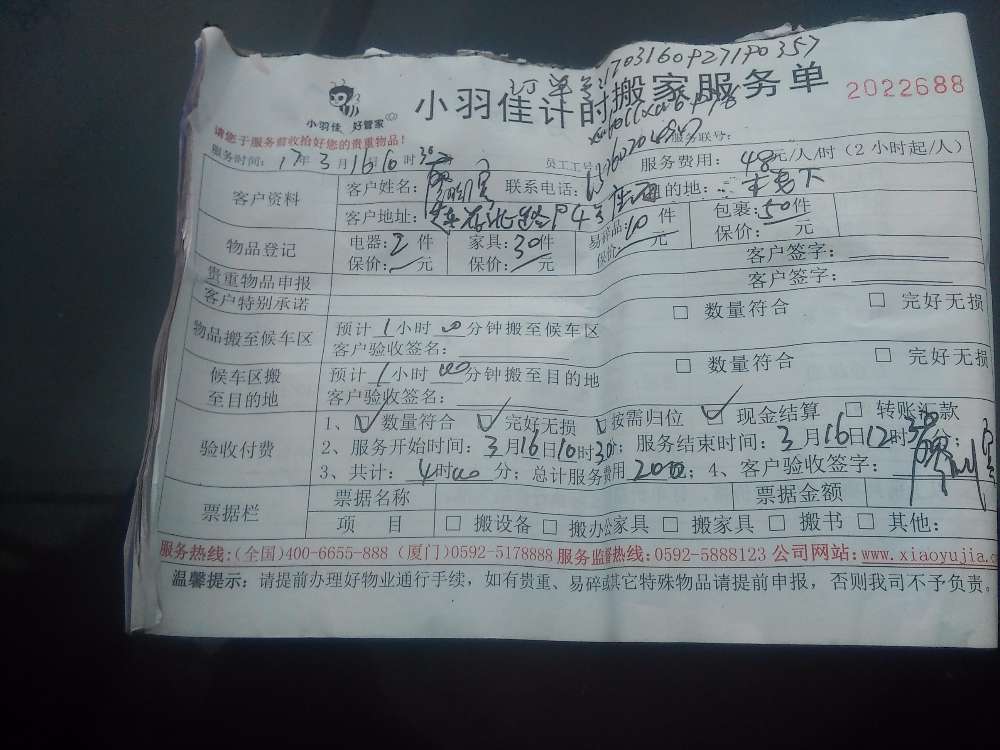 订单号1703160927190357
小羽佳计时搬家服务单
2022688
小羽佳 好管家
请您于服务前收拾好您的贵重物品!
服务时间: 17年3月16 10时30
员工工号
服务联号:
服务费用: 48元/人/时 (2小时起/人)
客户资料
客户姓名:
联系电话:
目的地:
客户地址:
物品登记
电器: 2件
保价: 元
家具: 30件
保价: 元
易碎品: 10件
保价: 元
包裹: 50件
保价: 元
客户签字:
贵重物品申报
客户签字:
客户特别承诺
物品搬至候车区
预计1小时00分钟搬至候车区
□ 数量符合 □ 完好无损
客户验收签名:
候车区搬至目的地
预计1小时00分钟搬至目的地
□ 数量符合 □ 完好无损
客户验收签名:
验收付费
1、☑数量符合 ☑完好无损 ☑按需归位 ☑现金结算 □ 转账汇款
2、服务开始时间: 3月16日10时30; 服务结束时间: 3月16日12时30分;
3、共计: 4时00分; 总计服务费用 ; 4、客户验收签字:
票据栏
票据名称
票据金额
项 目 □ 搬设备 □ 搬办公家具 □ 搬家具 □ 搬书 □ 其他:
服务热线:(全国)400-6655-888 (厦门)0592-5178888 服务监督热线:0592-5888123 公司网站:www.xiaoyujia.c
温馨提示: 请提前办理好物业通行手续, 如有贵重、易碎或其它特殊物品请提前申报, 否则我司不予负责。